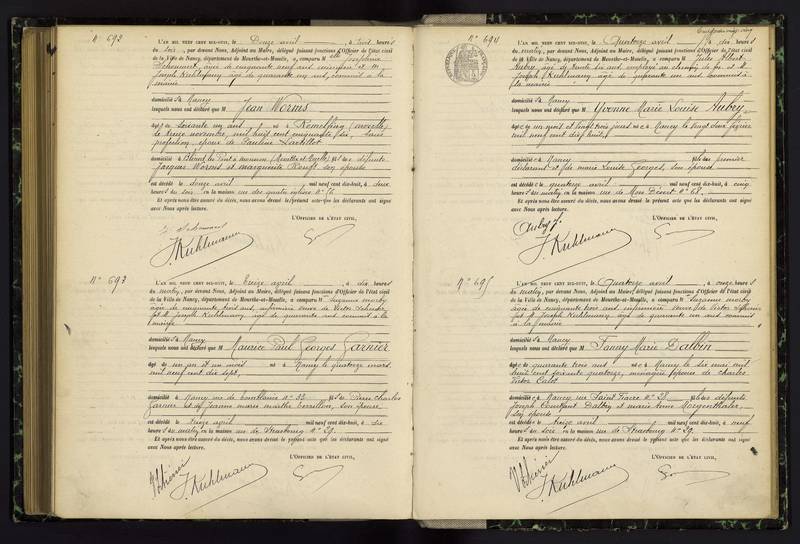 N° 692
L'AN MIL NEUF CENT DIX-HUIT, le Douze avril, à trois heures
du soir, par devant Nous, Adjoint au Maire, délégué faisant fonctions d'Officier de l'état civil
de la Ville de Nancy, département de Meurthe-et-Moselle, a comparu Joséphine
âgée de cinquante neuf ans et
Joseph Kuhlmann âgé de quarante un ans, commis à la
mairie
domiciliés à Nancy
lesquels nous ont déclaré que M Jean Worms
âgé de soixante un ans né à (Moselle)
le treize novembre mil huit cent cinquante six, sans
profession, époux de Pauline
domicilié à (Meurthe et Moselle) fils de défunts
Jacques Worms et Marguerite son épouse
est décédé le douze avril mil neuf cent dix-huit, à deux
heures du soir en la maison rue des quatre églises N°
Et après nous être assuré du décès, nous avons dressé le présent acte que les déclarants ont signé
avec Nous après lecture.
L'OFFICIER DE L'ÉTAT CIVIL,
J. Kuhlmann
N° 693
L'AN MIL NEUF CENT DIX-HUIT, le Treize avril, à dix heures
du matin, par devant Nous, Adjoint au Maire, délégué faisant fonctions d'Officier de l'état civil
de la Ville de Nancy, département de Meurthe-et-Moselle, a comparu M Suzanne
âgée de quarante trois ans, infirmière veuve de Victor
et M. Joseph Kuhlmann, âgé de quarante un ans commis à la
mairie
domiciliés à Nancy
lesquels nous ont déclaré que Maurice Paul Georges Garnier
âgé de un an et un mois né à Nancy le quatorze mars
mil neuf cent dix sept,
domicilié à Nancy rue de N° 33 fils de Pierre Charles
Garnier et de Jeanne Marie Marthe son épouse
est décédé le treize avril mil neuf cent dix-huit, à six
heures du matin en la maison rue de Strasbourg N° 29.
Et après nous être assuré du décès, nous avons dressé le présent acte que les déclarants ont signé
avec Nous après lecture.
L'OFFICIER DE L'ÉTAT CIVIL,
J. Kuhlmann
N° 694
L'AN MIL NEUF CENT DIX-HUIT, le Quatorze avril, à dix heures
du matin, par devant Nous, Adjoint au Maire, délégué faisant fonctions d'Officier de l'état civil
de la Ville de Nancy, département de Meurthe-et-Moselle, a comparu M Jules Albert
Aubry, âgé de trente six ans, employé au chemin de fer et M
Joseph Kuhlmann âgé de quarante un ans commis à
la mairie
domiciliés à Nancy
lesquels nous ont déclaré que M Yvonne Marie Louise Aubry,
âgée de un mois et vingt trois jours née à Nancy le vingt deux février
mil neuf cent dix huit,
domiciliée à Nancy fille de premier
déclarant et de Marie Louise Georges, son épouse
est décédée le quatorze avril mil neuf cent dix-huit, à cinq
heures du matin en la maison rue de Mon Désert N° 68.
Et après nous être assuré du décès, nous avons dressé le présent acte que les déclarants ont signé
avec Nous après lecture.
L'OFFICIER DE L'ÉTAT CIVIL,
Aubry J.
J. Kuhlmann
N° 695
L'AN MIL NEUF CENT DIX-HUIT, le Quatorze avril, à onze heures
du matin, par devant Nous, Adjoint au Maire, délégué faisant fonctions d'Officier de l'état civil
de la Ville de Nancy, département de Meurthe-et-Moselle, a comparu M Suzanne
âgée de quarante trois ans infirmière veuve de Victor
et M. Joseph Kuhlmann âgé de quarante un ans commis
à la mairie
domiciliés à Nancy
lesquels nous ont déclaré que M Fanny Marie Dalbin
âgée de quarante trois ans née à Nancy le six mai mil
huit cent soixante quatorze, ménagère épouse de Charles
Victor
domiciliée à Nancy rue Saint N° 28 fille de défunts
Joseph Constant et Marie Anne Morgenthaler,
son épouse
est décédée le treize avril mil neuf cent dix-huit, à neuf
heures du soir en la maison rue de Strasbourg N° 29.
Et après nous être assuré du décès, nous avons dressé le présent acte que les déclarants ont signé
avec Nous après lecture.
L'OFFICIER DE L'ÉTAT CIVIL,
J. Kuhlmann